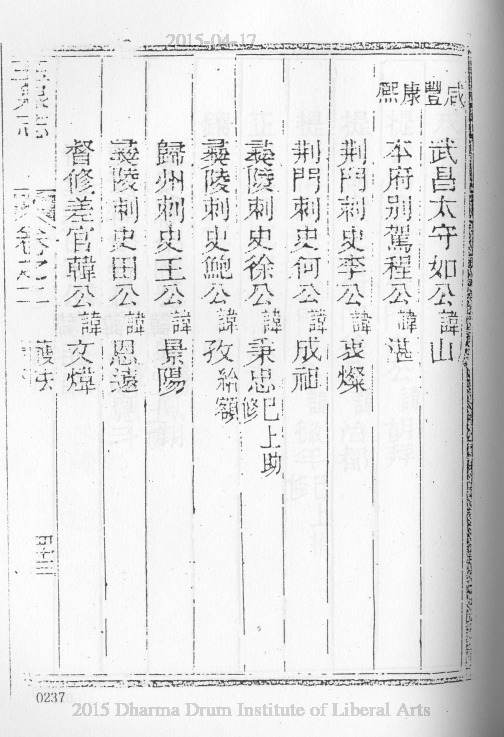 2015-04-17
咸豐康熙
武昌太守如公諱山
本府別駕程公諱湛
荆門刺史李公諱燦
荆門刺史何公諱成祖
彝陵刺史徐公諱秉忠已上助修
彝陵刺史鮑公諱孜給額
歸州刺史王公諱景陽
彝陵刺史田公諱恩遠
督修差官韓公諱文煒
玉泉志
卷之二
護法
0237
2015 Dharma Drum Institute of Liberal Arts